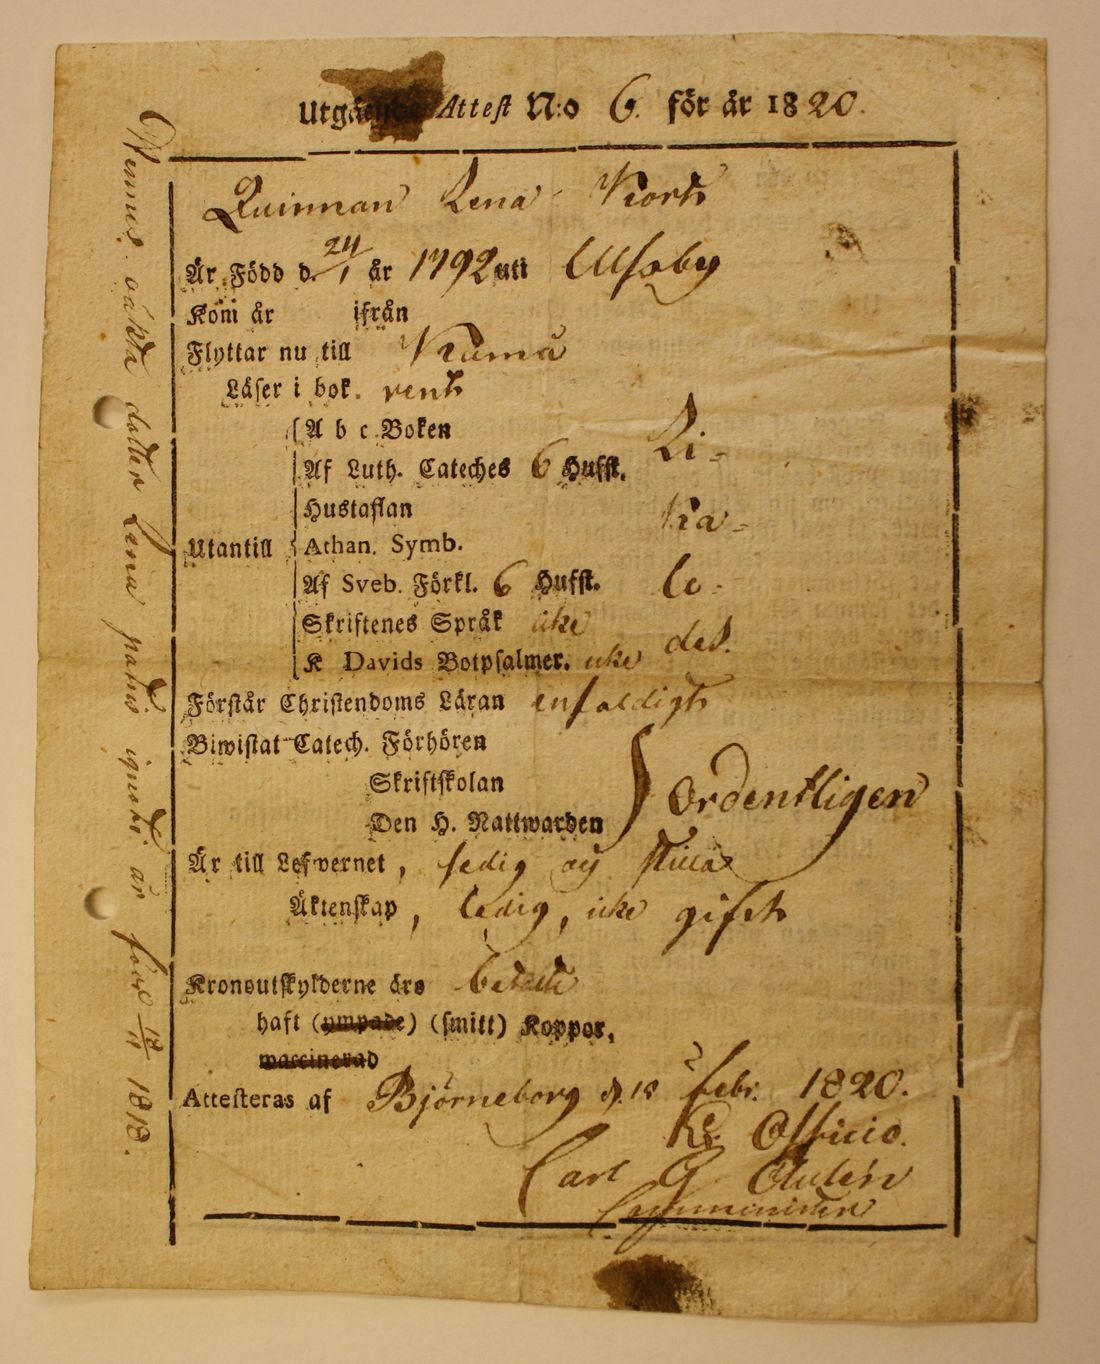 Utgående Attest N:o 6. för år 1820.
Quinnan Lena Korts
Är Född d. 24/1 år 1792 uti Ulfsby
Kom år ifrån
Flyttar nu till Kumå
Läser i bok. rent
A b c Boken
Af Luth. Cateches 6 Hufst. Li-
Hustaflan Ka-
Utantill Athan. Symb.
Af Sveb. Förkl. 6 Hufst. le-
Skriftenes Språk icke
K Davids Botpsalmer. icke des.
Förstår Christendoms Läran enfaldigt
Biwistat Catech. Förhören
Skriftskolan ordentligen
Den H. Nattwarden
Är till Lefwernet, sedig och stilla
Äktenskap, ledig, icke gift
Kronoutskylderne äro betalte
haft (ympade) (smitt) Koppor,
waccinerad
Attesteras af Björneborg d. 18 Febr. 1820.
Ex Officio.
Carl G
Comminister
oäkta dotter Lena patris ignoti är född 18/11 1818.